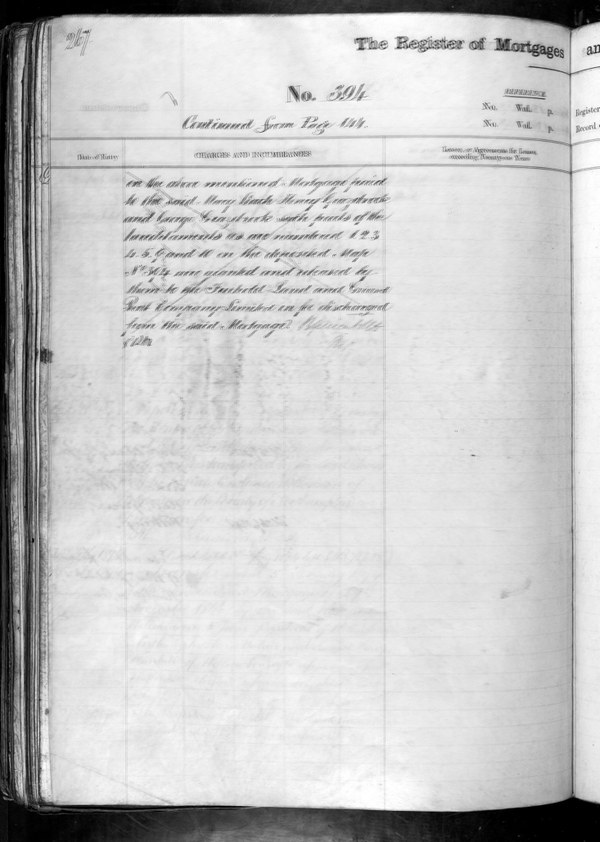 247
The Register of Mortgages
an
No. 394
REFERENCE
No. Vol. p.
No. Vol. p.
Register
Record
Continued from Page 144
Date of Entry
CHARGES AND INCUMBRANCES
Leases, or Agreements for Leases, exceeding Twenty-one Years
on the above mentioned Mortgage joined
to the said Mary Henry Grazebrook
and George Grazebrook such parts of the
hereditaments as are numbered 1 2 3
4. 5. 9 and 10 on the deposited Map
No. 394 are granted and released by
them to the Freehold Land and Ground
Rent Company Limited in fee discharged
from the said Mortgage.